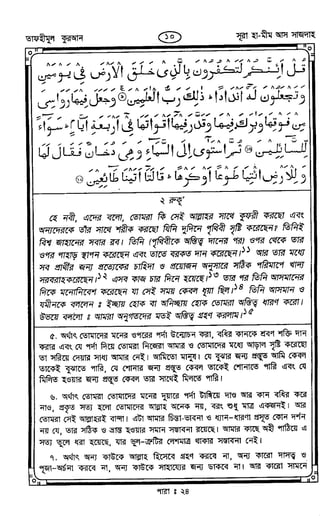 তাফহীমুল কুরআন
১০
সূরা হা-মীম আস সাজদাহ
قُلْ اَئِنَّكُمْ لَتَكْفُرُوْنَ بِالَّذِىْ خَلَقَ الْاَرْضَ فِىْ يَوْمَيْنِ
وَتَجْعَلُوْنَ لَهٗٓ اَنْدَادًا ؕ ذٰلِكَ رَبُّ الْعٰلَمِيْنَ ۚ وَجَعَلَ فِيْهَا رَوَاسِىَ
مِنْ فَوْقِهَا وَبٰرَكَ فِيْهَا وَقَدَّرَ فِيْهَآ اَقْوَاتَهَا فِىْٓ اَرْبَعَةِ اَيَّامٍ ؕ سَوَآءً
لِّلسَّآئِلِيْنَ ثُمَّ اسْتَوٰٓى اِلَى السَّمَآءِ وَهِىَ دُخَانٌ فَقَالَ لَهَا
وَلِلْاَرْضِ ائْتِيَا طَوْعًا اَوْ كَرْهًا ؕ قَالَتَآ اَتَيْنَا طَآئِعِيْنَ
২ রুকূ'
হে নবী, এদের বলো, তোমরা কি সেই আল্লাহর সাথে কুফরী করছো এবং
অন্যদেরকে তাঁর সাথে শরীক করছো যিনি দুদিনে পৃথিবী সৃষ্টি করেছেন। তিনিই
বিশ্ব জাহানের সবার রব। তিনি (পৃথিবীকে অস্তিত্ব দানের পর) ওপর থেকে তার
ওপর পাহাড় স্থাপন করেছেন এবং তাতে বরকত দান করেছেন।১১ আর তার মধ্যে
সব প্রার্থীর জন্য প্রত্যেকের চাহিদা ও প্রয়োজন অনুসারে সঠিক পরিমাপে খাদ্য
সরবরাহ করেছেন।১২ এসব কাজ চার দিনে হয়েছে।১৩ তার পর তিনি আসমানের
দিকে মনোনিবেশ করেছেন যা সেই সময় কেবল ধূয়া ছিল।১৪ তিনি আসমান ও
যমীনকে বললেন ঃ ইচ্ছায় হোক বা অনিচ্ছায় হোক তোমরা অস্তিত্ব ধারণ করো।
উভয়ে বললো ঃ আমরা অনুগতদের মতই অস্তিত্ব গ্রহণ করলাম।১৫
৫. অর্থাৎ তোমাদের মনের ওপরের পর্দা উন্মোচন করা, বধির কানকে শ্রবণ শক্তি দান
করার এবং যে পর্দা দিয়ে তোমরা নিজেরা আমার ও তোমাদের মধ্যে আড়াল সৃষ্টি করেছো
তা সরিয়ে দেয়ার সাধ্য আমার নেই। আমিতো মানুষ। যে বুঝার জন্য প্রস্তুত আমি কেবল
তাকেই বুঝাতে পারি, যে শোনার জন্য প্রস্তুত কেবল তাকেই শোনাতে পারি এবং যে
মিলিত হওয়ার জন্য প্রস্তুত কেবল তার সাথেই মিলতে পারি।
৬. অর্থাৎ তোমরা তোমাদের মনের দুয়ারে পর্দা টাঙ্গিয়ে দাও আর কান বধির করে
নাও, প্রকৃত সত্য হলো তোমাদের আল্লাহ অনেক নয়, বরং শুধু মাত্র একজনই। আর
তোমরা সেই আল্লাহরই বান্দা। এটা আমার চিন্তা-ভাবনা ও ধ্যান-ধারণা প্রসূত কোন দর্শন
নয় যে, তার সঠিক ও ভ্রান্ত হওয়ার সমান সম্ভাবনা রয়েছে। আমার কাছে অহী পাঠিয়ে এ
সত্য তুলে ধরা হয়েছে, যার ভুল-ত্রুটির লেশমাত্র থাকার সম্ভাবনা নেই।
৭. অর্থাৎ অন্য কাউকে আল্লাহ হিসেবে গ্রহণ করবে না, অন্য কারো দাসত্ব ও
পূজা-অর্চনা করবে না, অন্য কাউকে সাহায্যের জন্য ডাকবে না। আর কারো সামনে
পারা ঃ ২৪